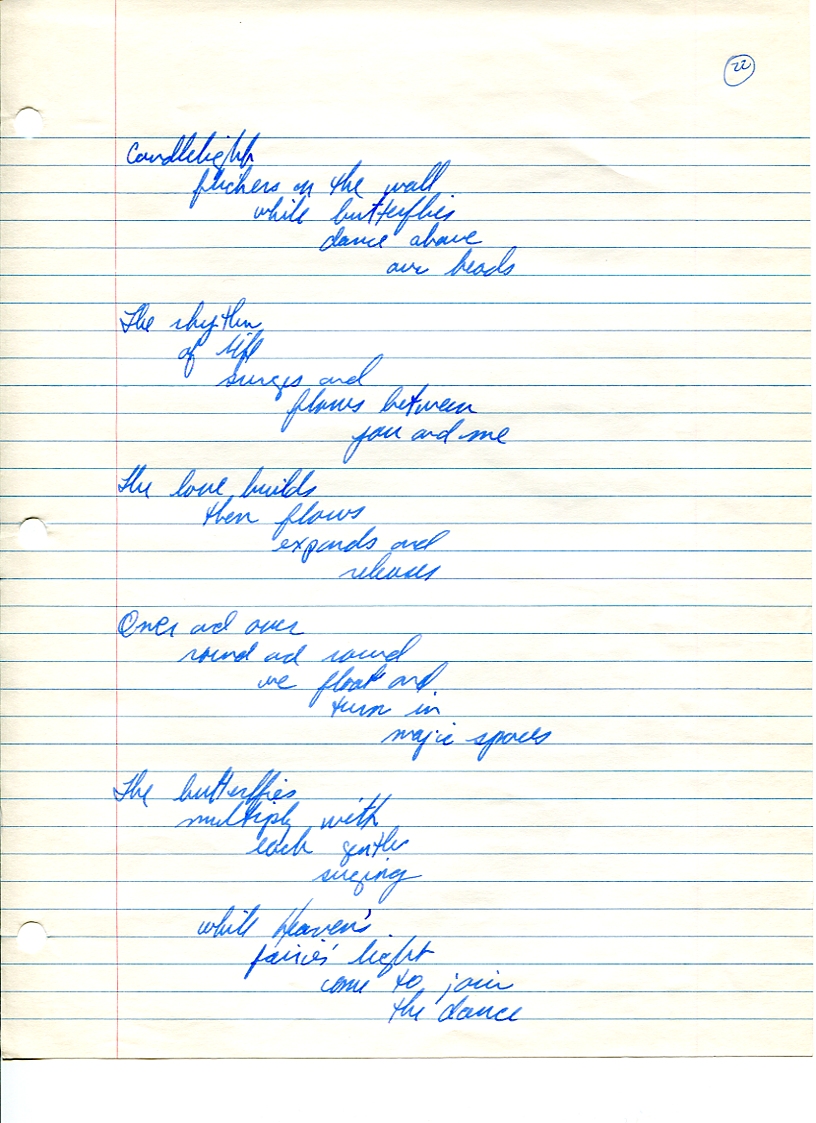 22
Candlelight
flickers on the wall
while butterflies
dance above
our heads
The rhythm
of life
surges and
flows between
you and me
The love builds
then flows
expands and
releases
Over and over
round and round
we float and
turn in
magic spaces
The butterflies
multiply with
each gentle
surging
while Heaven's
fairies' light
come to join
the dance